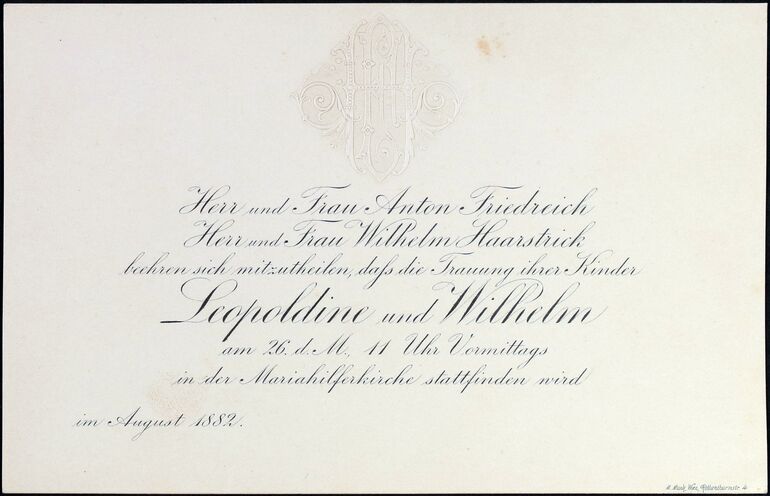 Herr und Frau Anton Friedreich
Herr und Frau Wilhelm Haarstrick
beehren sich mitzutheilen, daſs die Trauung ihrer Kinder
Leopoldine und Wilhelm
am 26. d. M., 11 Uhr Vormittags
in der Mariahilferkirche stattfinden wird
im August 1882.
M. Munk, Wien, Rothenthurmstr. 4